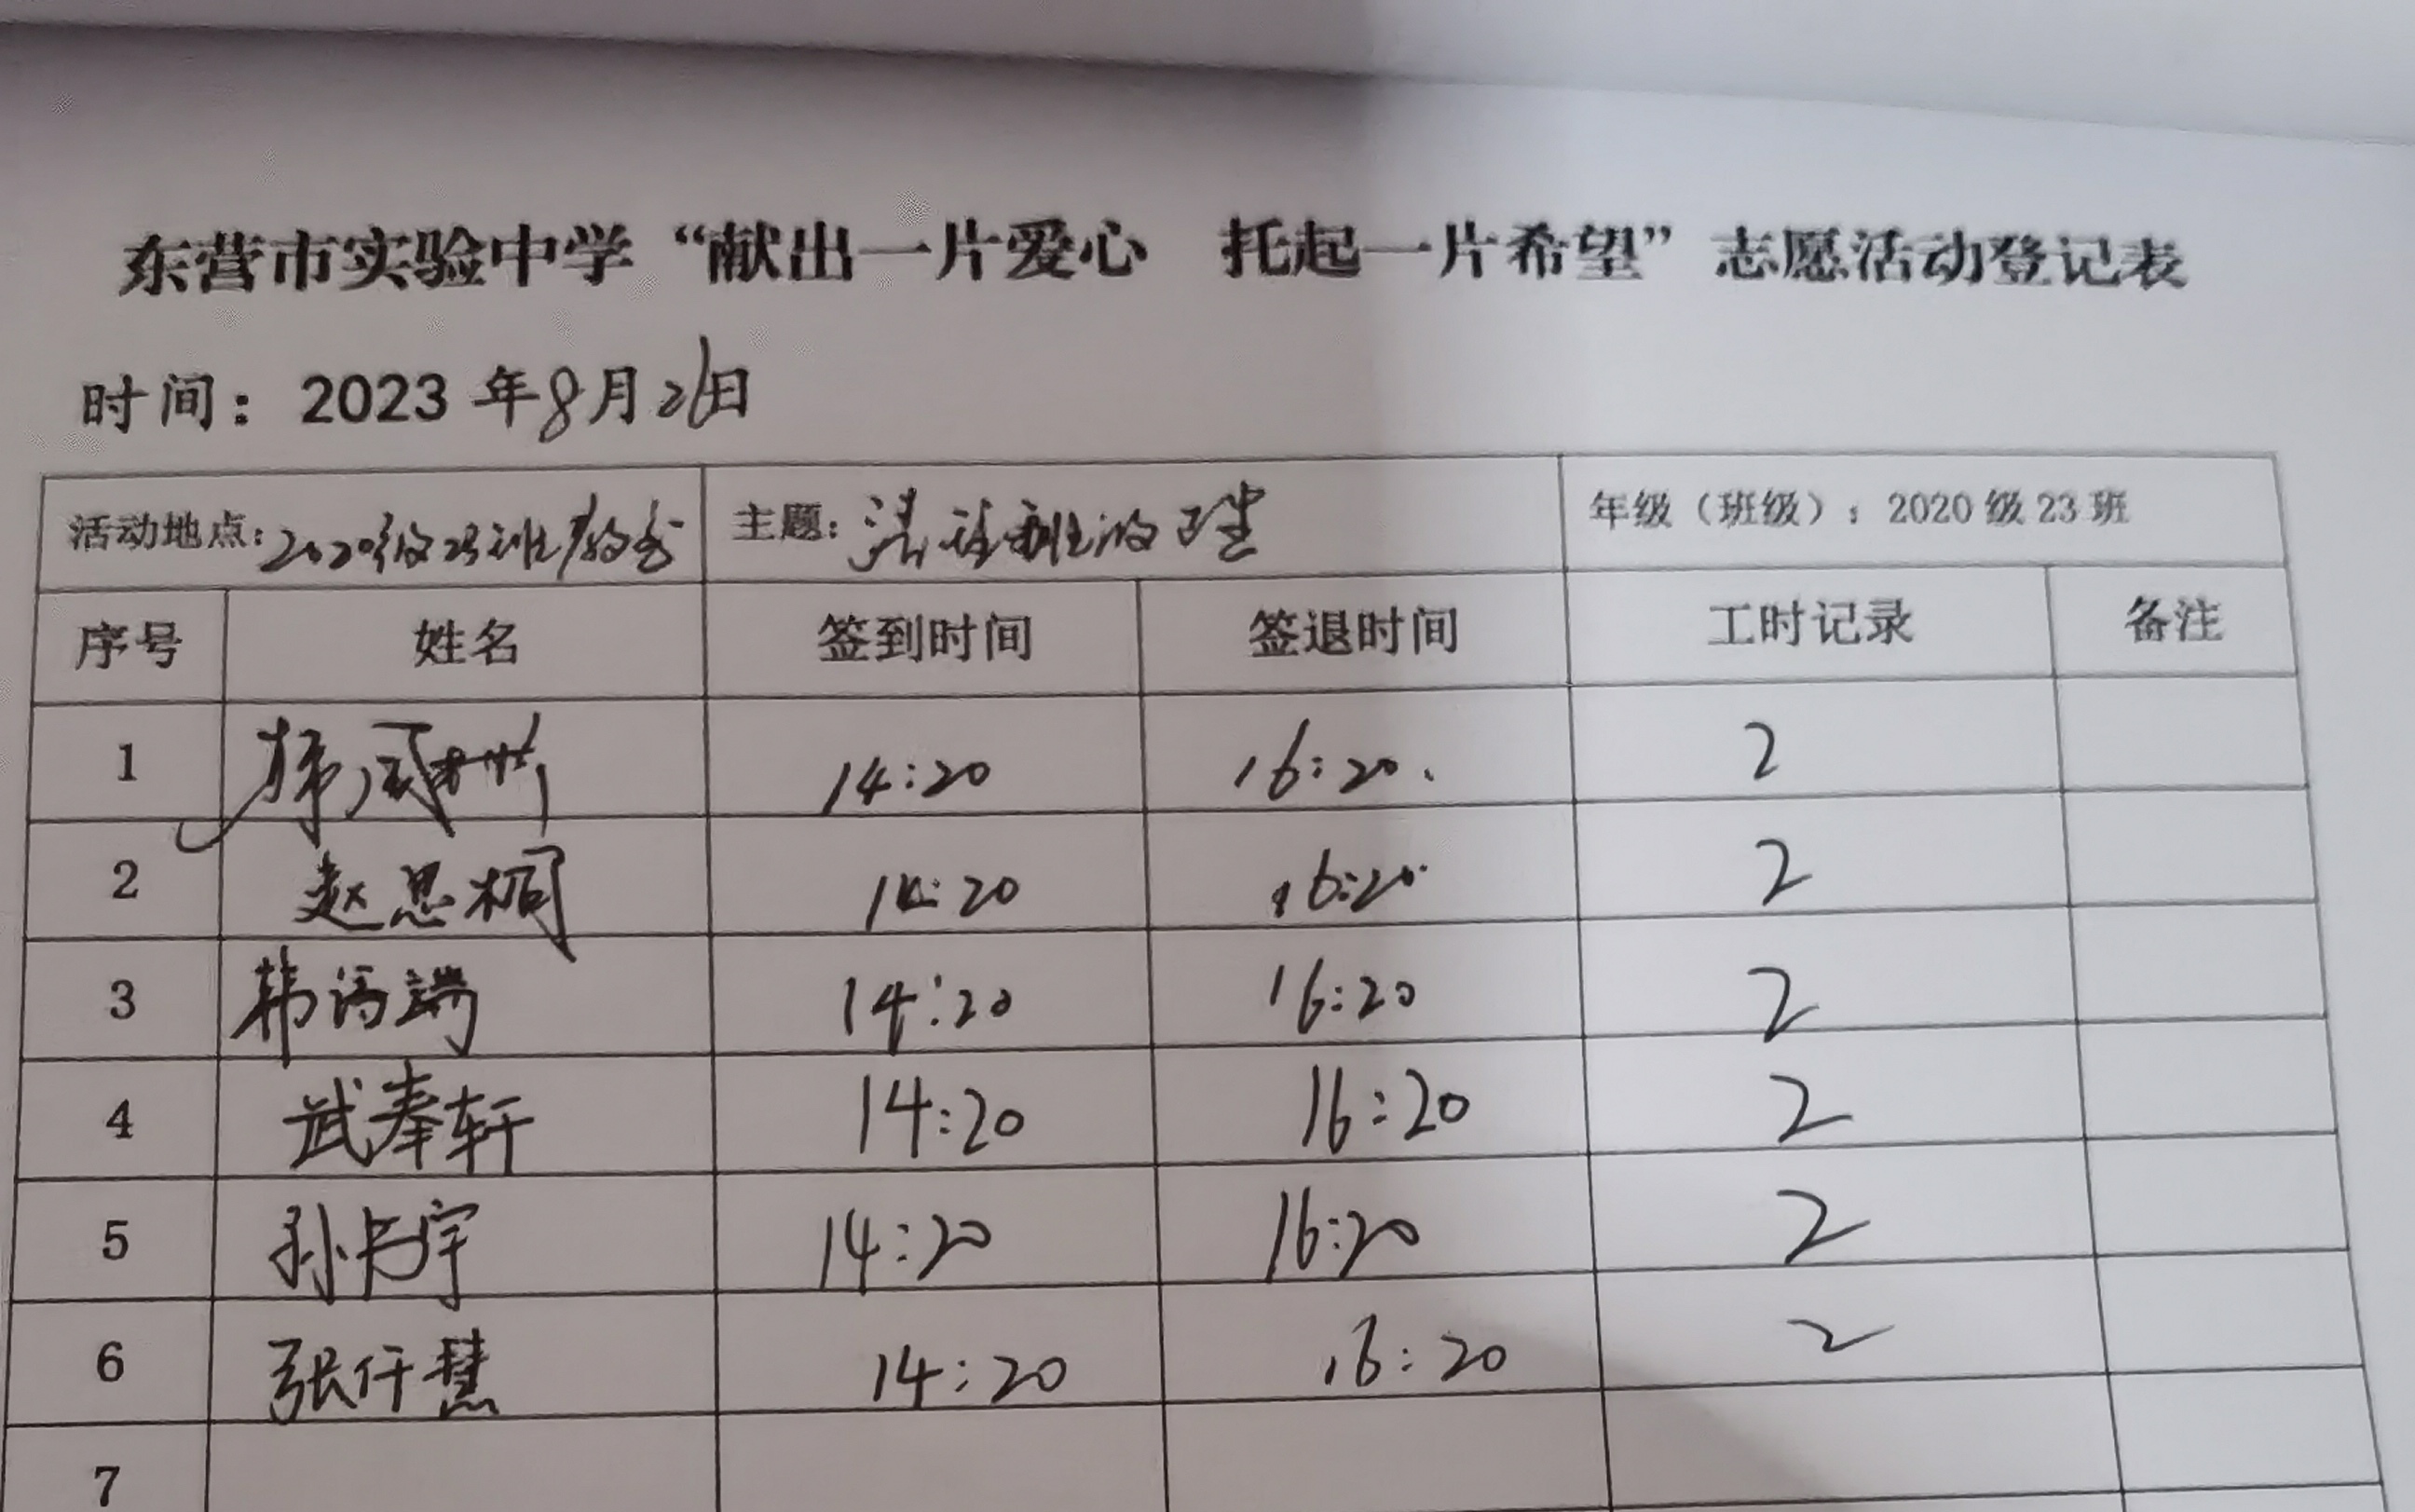 东营市实验中学“献出一片爱心 托起一片希望”志愿活动登记表
时间：2023年8月26日
活动地点：2020级23班教室 主题：清班级 年级（班级）：2020级23班
序号 姓名 签到时间 签退时间 工时记录 备注
1 14:20 16:20. 2
2 赵思桐 14:20 16:20 2
3 韩语端 14:20 16:20 2
4 武奉轩 14:20 16:20 2
5 孙宇 14:20 16:20 2
6 张仟慧 14:20 16:20 2
7